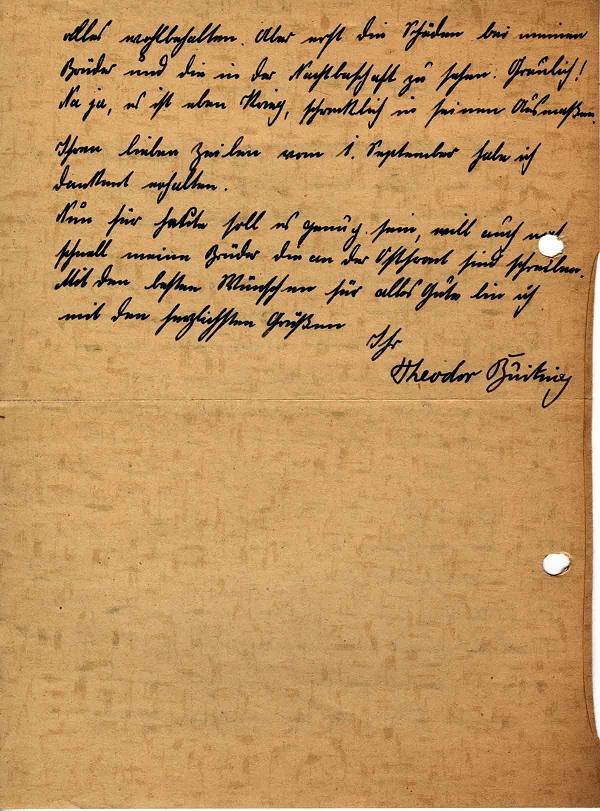 alles wohlbehalten. Aber erst die Schäden bei meinem
Bruder und die in der Nachbarschaft zu sehen. Greulich!
Na ja, es ist eben Krieg, schrecklich in seinen Ausmaßen.
Ihren lieben Zeilen vom 1. September habe ich
dankend erhalten.
Nun für heute soll es genug sein, will auch noch
schnell meine Brüder die an der Ostfront sind schreiben.
Mit den besten Wünschen für alles Gute bin ich
mit den herzlichsten Grüßen
Ihr
Theodor